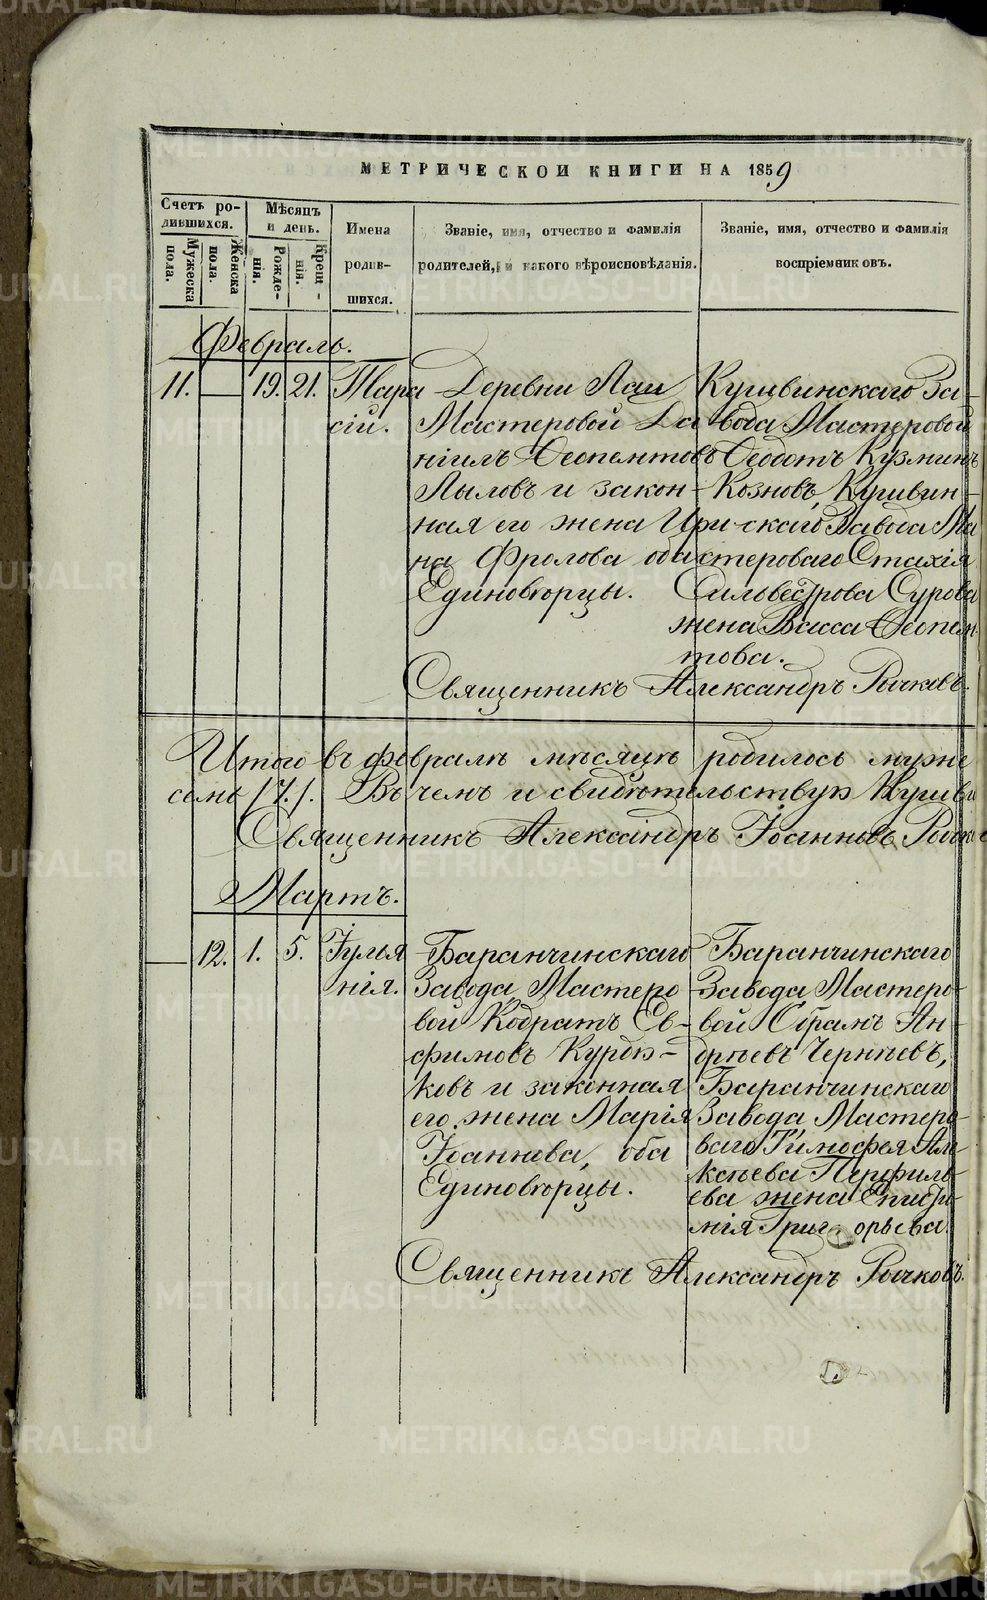 МЕТРИЧЕСКОЙ КНИГИ НА 1859
Счетъ ро-
дившихся.
Мужеска
пола.
Женска
пола.
Мѣсяцъ
и день.
Рожде-
нія.
Крещ-
нія.
Имена
родив-
шихся.
Званіе, имя, отчество и фамилія
родителей, и какого вѣроисповѣданія.
Званіе, имя, отчество и фамилія
воспріемниковъ.
Февраль.
11. — 19. 21.
Тара
сій.
Деревни Лаи
Мастеровой Да
ніилъ Ѳеопемтовъ
Лыловъ и закон-
ная его жена Ири-
на Фролова оба
Единовѣрцы.
Кушвинскаго За-
вода Мастеровой
Ѳеодотъ Кузминъ
Козновъ, Кушвин-
скаго Завода Ма
стероваго Стахія
Сильвестрова Сурова
жена Васса Ѳеопем
това.
Священникъ Александръ Рычковъ.
Итого въ февралѣ мѣсяцѣ родилось муже
семь /7./. Въ чемъ и свидѣтельствую Кушви
Священникъ Александръ Іоанновъ Рычк
Мартъ.
— 12. 1. 5.
Іулья
нія.
Баранчинскаго
Завода Мастеро
вой Кодратъ Ев-
фимовъ Курдю-
ковъ и законная
его жена Марія
Іоаннова, оба
Единовѣрцы.
Баранчинскаго
Завода Мастеро-
вой Абрамъ Ан-
дрѣевъ Чернѣевъ,
Баранчинскаго
Завода Мастеро-
ваго Тимофея Але
ксѣева Перфиль-
ева жена Епистѣ-
мія Григорьева.
Священникъ Александръ Рычковъ.
METRIKI.GASO-URAL.RU